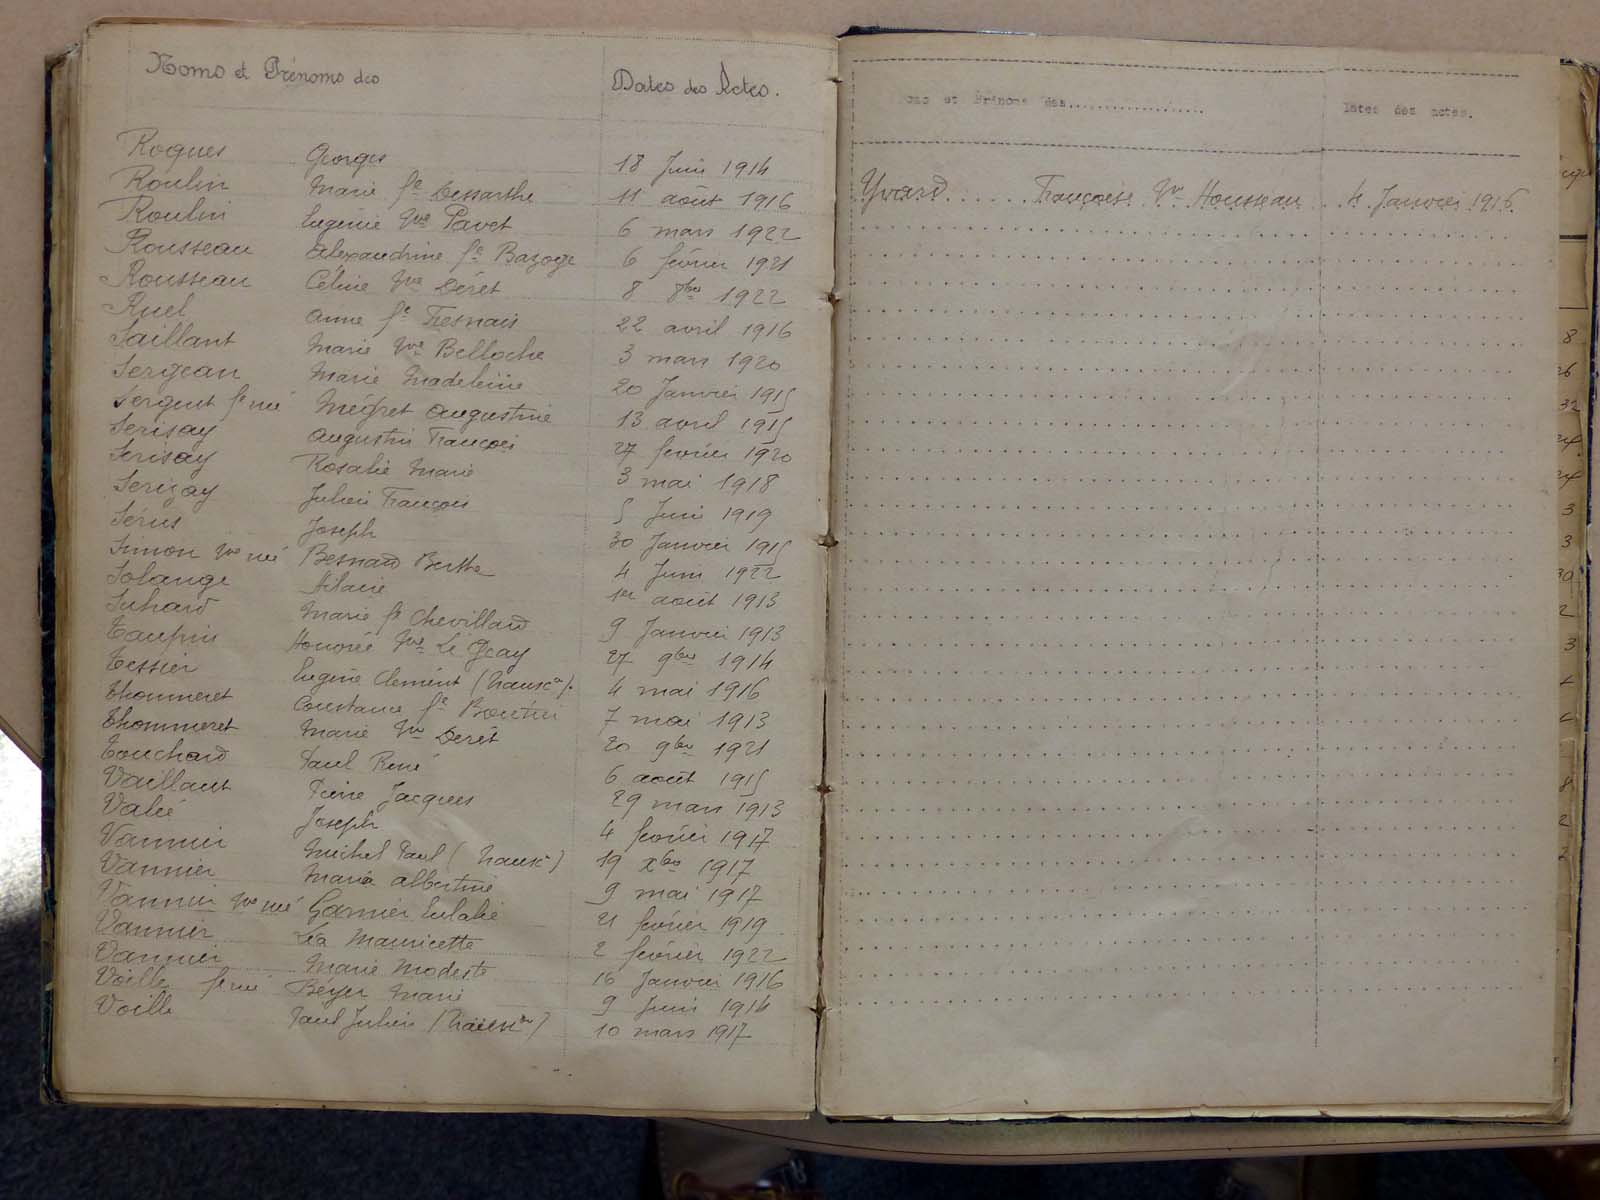 Noms et Prénoms des Dates des Actes.
Roques Georges 18 Juin 1914
Roulin Marie fe Dessarthe 11 août 1916
Roulin Eugénie Vve Pavet 6 mars 1922
Rousseau Alexandrine fe Bazoge 6 février 1921
Rousseau Céline Vve Déret 8 8bre 1922
Ruel Anne fe Fresnais 22 avril 1916
Saillant Marie Vve Belloche 3 mars 1920
Sergean Marie Madeleine 20 Janvier 1915
Sergent fe née Mégret Augustine 13 avril 1915
Serisay Augustin François 27 février 1920
Serisay Rosalie Marie 3 mai 1918
Serizay Julien François 5 Juin 1919
Sérus Joseph 30 Janvier 1915
Simon Vve née Besnard Berthe 4 Juin 1922
Solange Hilaire 1er août 1913
Suhard Marie fe Chevillard 9 Janvier 1913
Taupin Honorée Vve Le Geay 27 9bre 1914
Tessier Eugène Clément 4 mai 1916
Thommeret Constance fe 7 mai 1913
Thommeret Marie Vve Deret 20 9bre 1921
Touchard Paul René 6 août 1915
Vaillant Pierre Jacques 29 mars 1913
Valié Joseph 4 février 1917
Vannier Michel Paul 19 xbre 1917
Vannier Maria Albertine 9 mai 1917
Vannier Vve née Garnier Eulalie 21 février 1919
Vannier Léa Mauricette 2 février 1922
Vannier Marie Modeste 16 Janvier 1916
Voille fe née Beyer Marie 9 Juin 1914
Voille Paul Julien 10 mars 1917
et Prénoms des................... Dates des actes.
Yvard...... Françoise Vve Housseau... 4 Janvier 1916